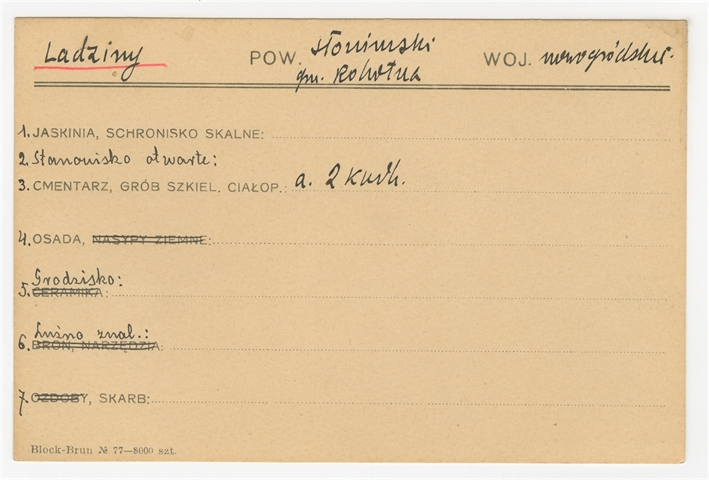 Ladziny POW. słonimski WOJ. nowogródzkie.
gm. Rohotna
1. JASKINIA, SCHRONISKO SKALNE:
2. Stanowisko otwarte:
3. CMENTARZ, GRÓB SZKIEL. CIAŁOP.: a. 2 kurh.
4. OSADA, NASYPY ZIEMNE:
Grodzisko:
5. CERAMIKA:
Luźno znal.:
6. BROŃ, NARZĘDZIA:
7. OZDOBY, SKARB:
Block-Brun № 77—8000 szt.